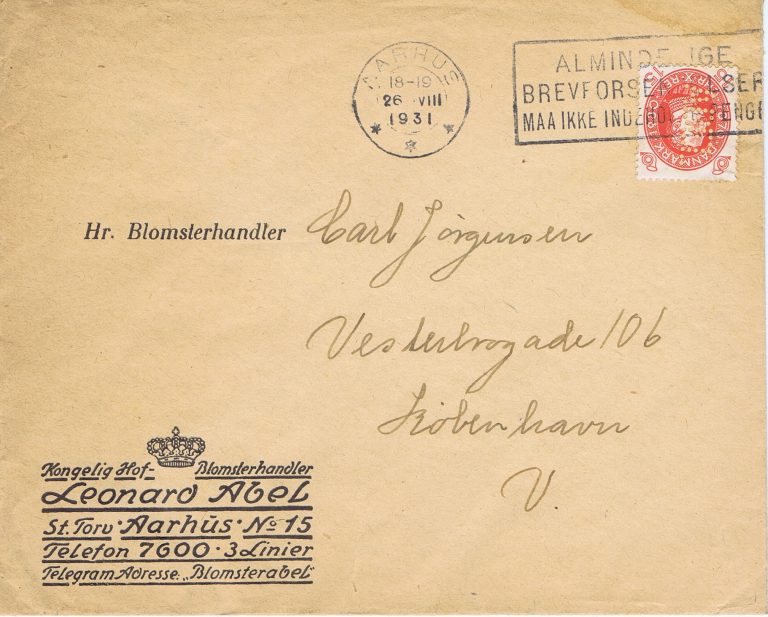 AARHUS
18-19
26 VIII
1931
ALMINDE IGE
BREVFORSE ELSER
MAA IKKE INDEHOLDE PENGE
DANMARK
Hr. Blomsterhandler Carl Jörgensen
Vesterbrogade 106
København
V.
Kongelig Hof- Blomsterhandler
Leonard Abel
St. Torv · Aarhus · No 15
Telefon 7600 · 3 Linier
Telegram Adresse: „Blomsterabel“